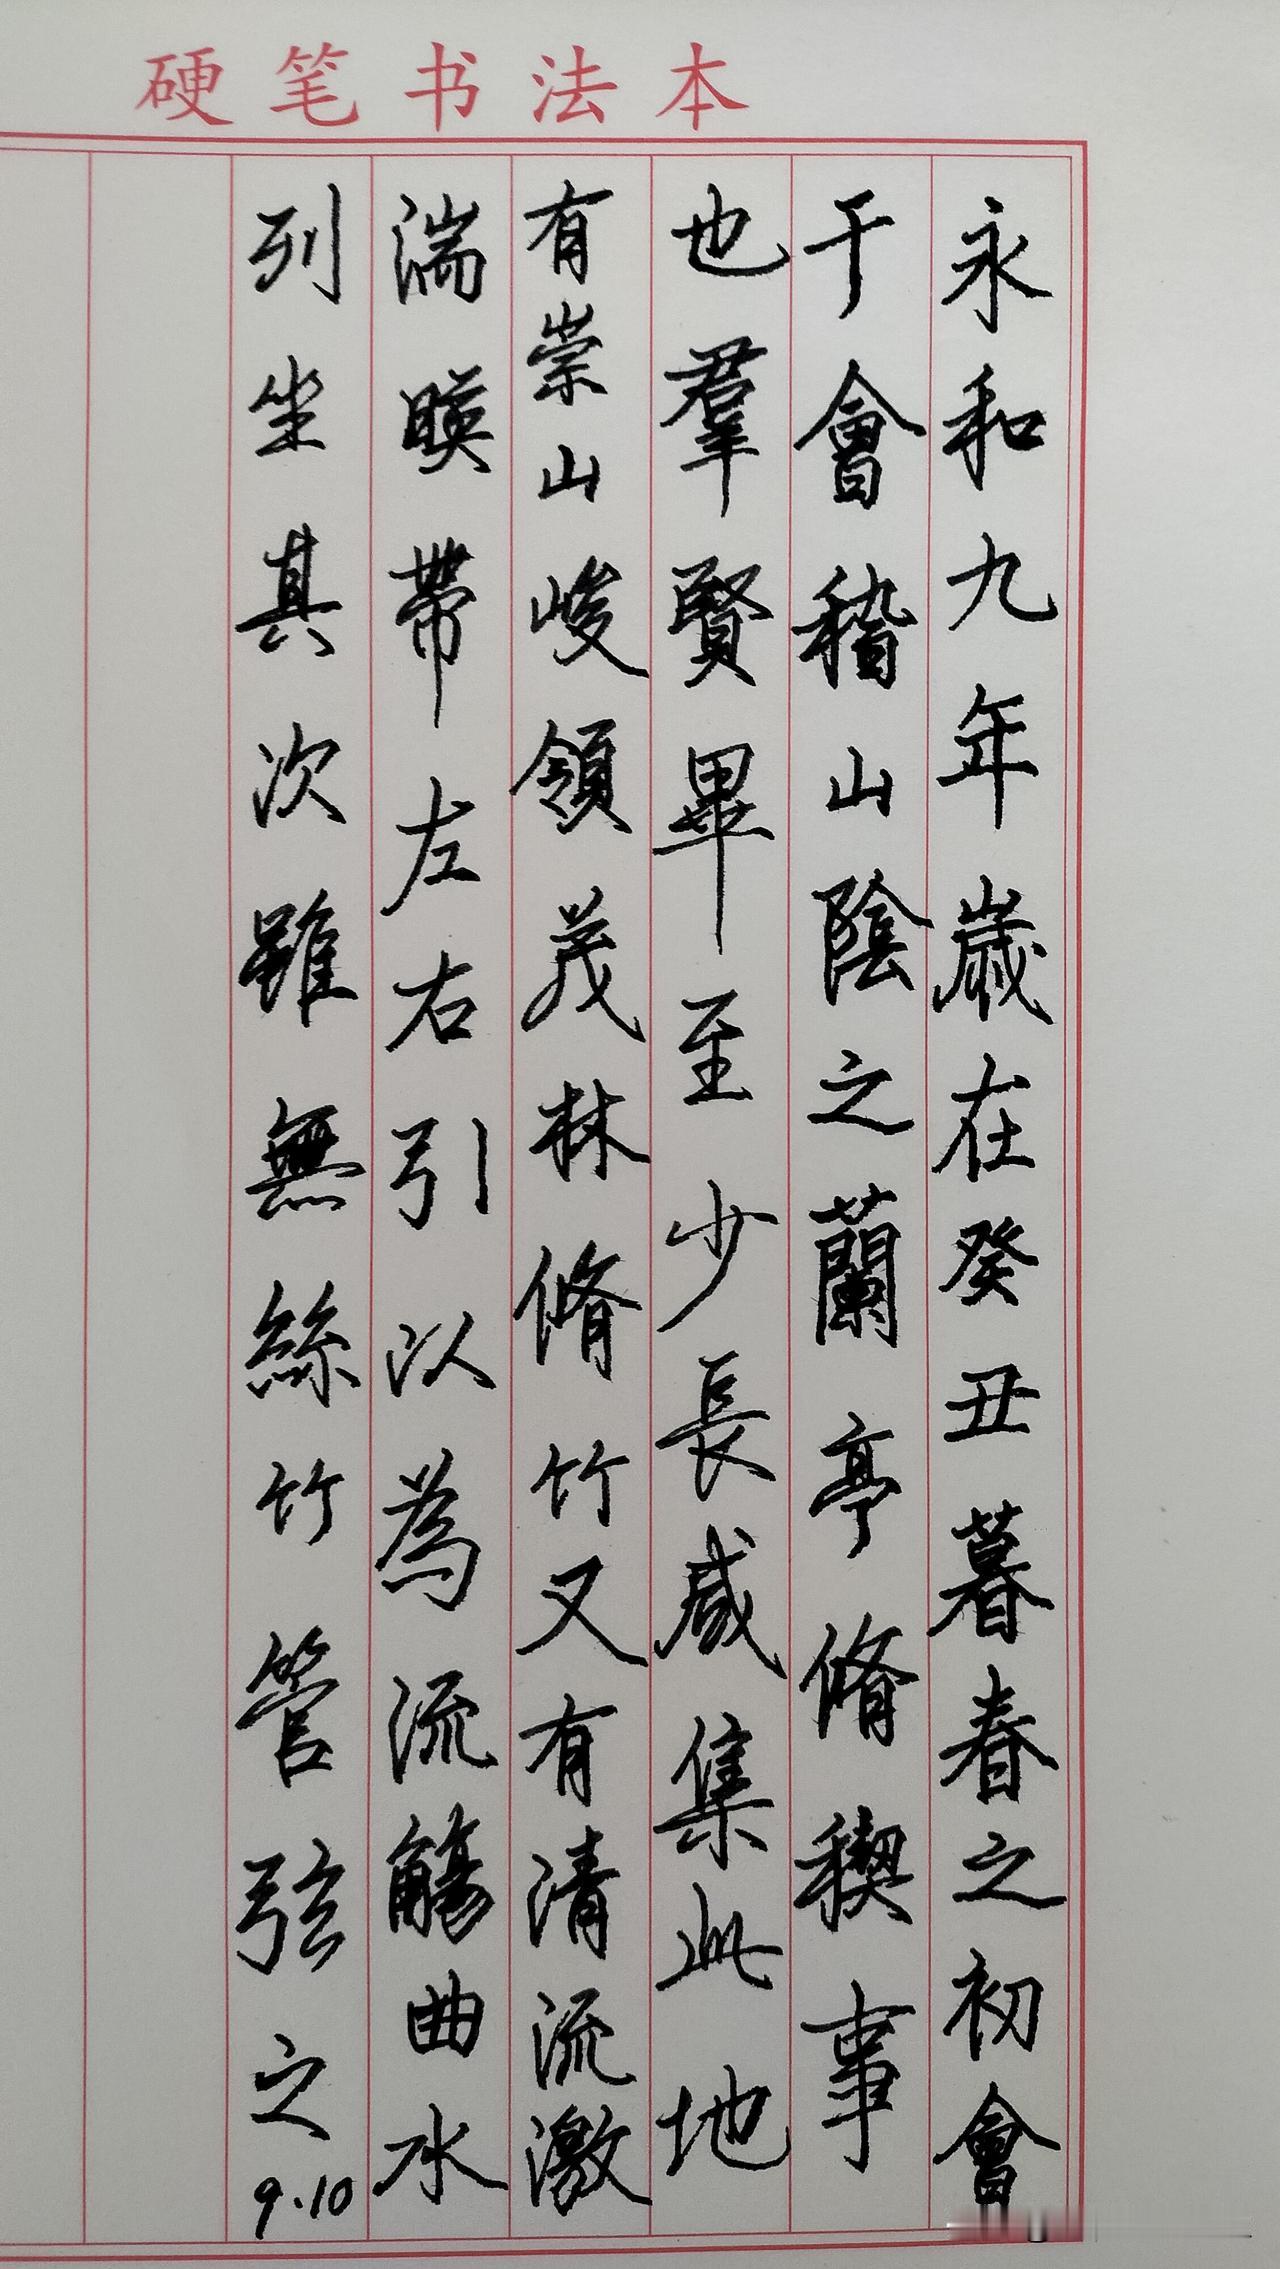 硬笔书法本
永和九年歲在癸丑暮春之初會
于會稽山陰之蘭亭脩稧事
也羣賢畢至少長咸集此地
有崇山峻領茂林脩竹又有清流激
湍暎帶左右引以為流觴曲水
列坐其次雖無絲竹管弦之
9.10